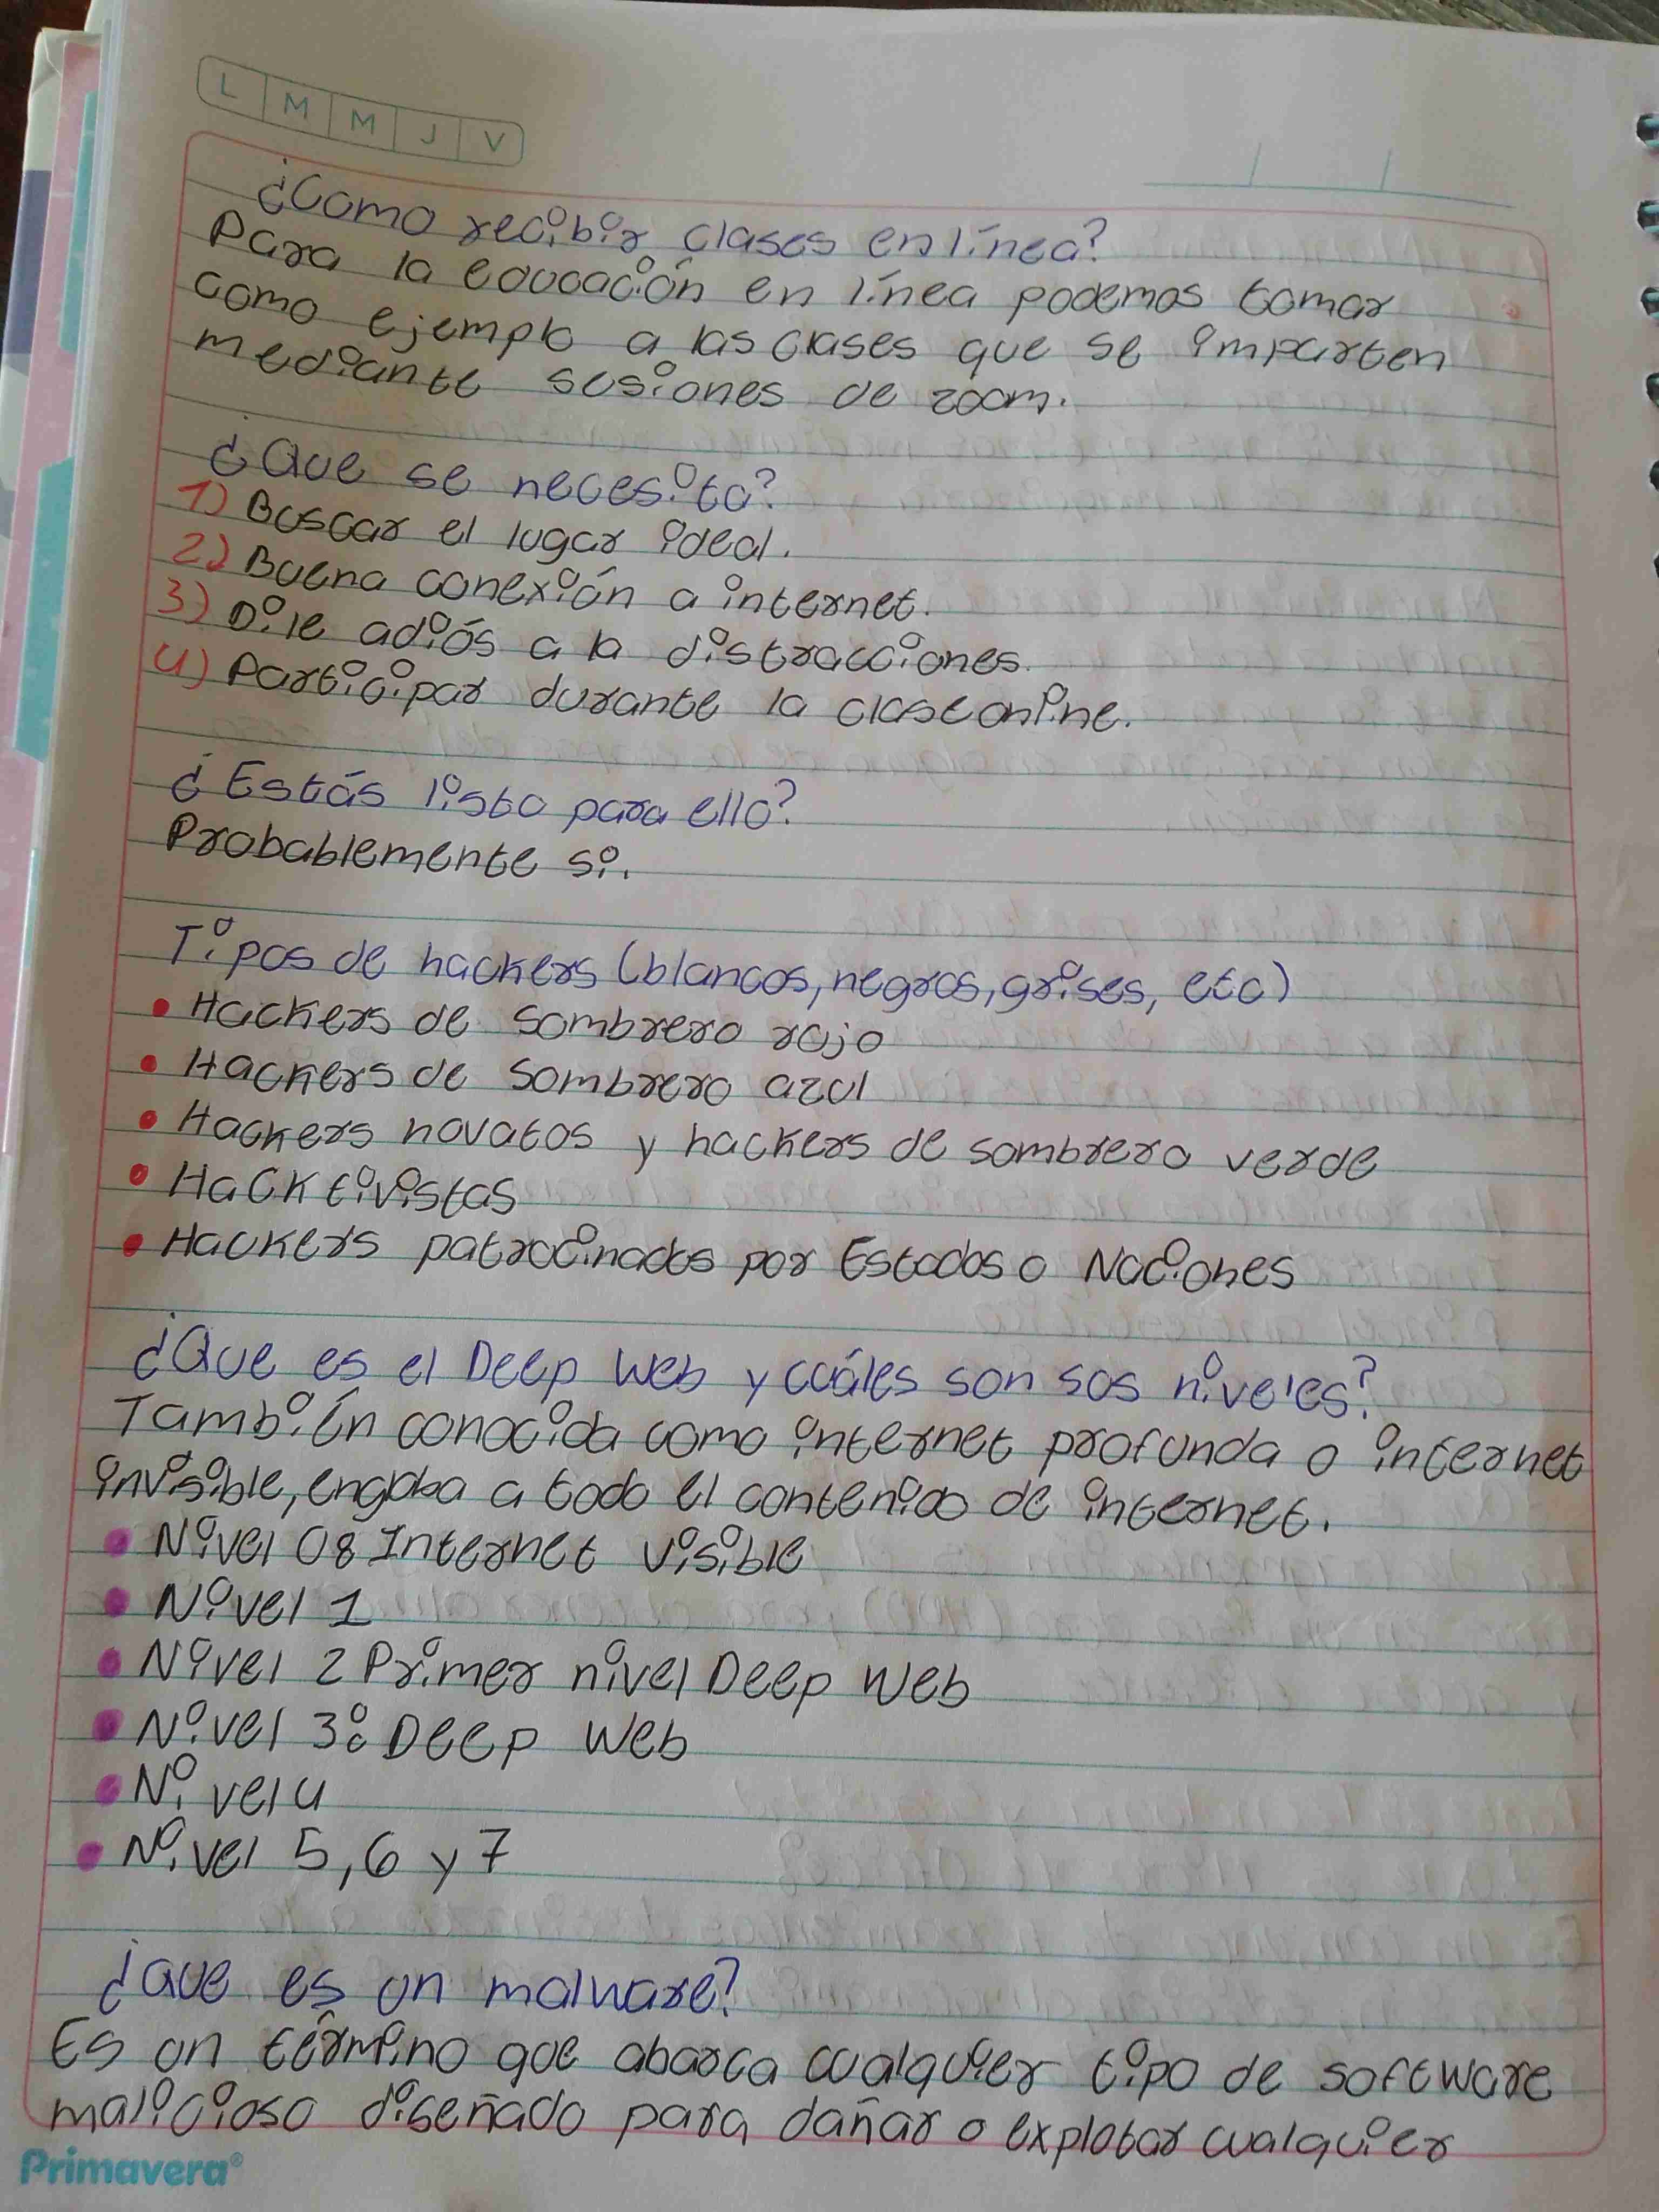 L M M J V
¿Como recibir clases en línea?
Para la educación en línea podemos tomar
como ejemplo a las clases que se imparten
mediante sesiones de zoom.
¿Que se necesita?
1) Buscar el lugar ideal.
2) Buena conexión a internet.
3) Dile adiós a la distracciones.
4) Participar durante la clase online.
¿Estás listo para ello?
Probablemente si.
Tipos de hackers (blancos, negros, grises, etc)
• Hackers de sombrero rojo
• Hackers de sombrero azul
• Hackers novatos y hackers de sombrero verde
• Hacktivistas
• Hackers patrocinados por Estados o Naciones
¿Que es el Deep Web y cuáles son sus niveles?
También conocida como internet profunda o internet
invisible, engloba a todo el contenido de internet.
• Nivel 0: Internet visible
• Nivel 1
• Nivel 2 Primer nivel Deep Web
• Nivel 3: Deep Web
• Nivel 4
• Nivel 5, 6 y 7
¿Que es un malware?
Es un término que abarca cualquier tipo de software
malicioso diseñado para dañar o explotar cualquier
Primavera®